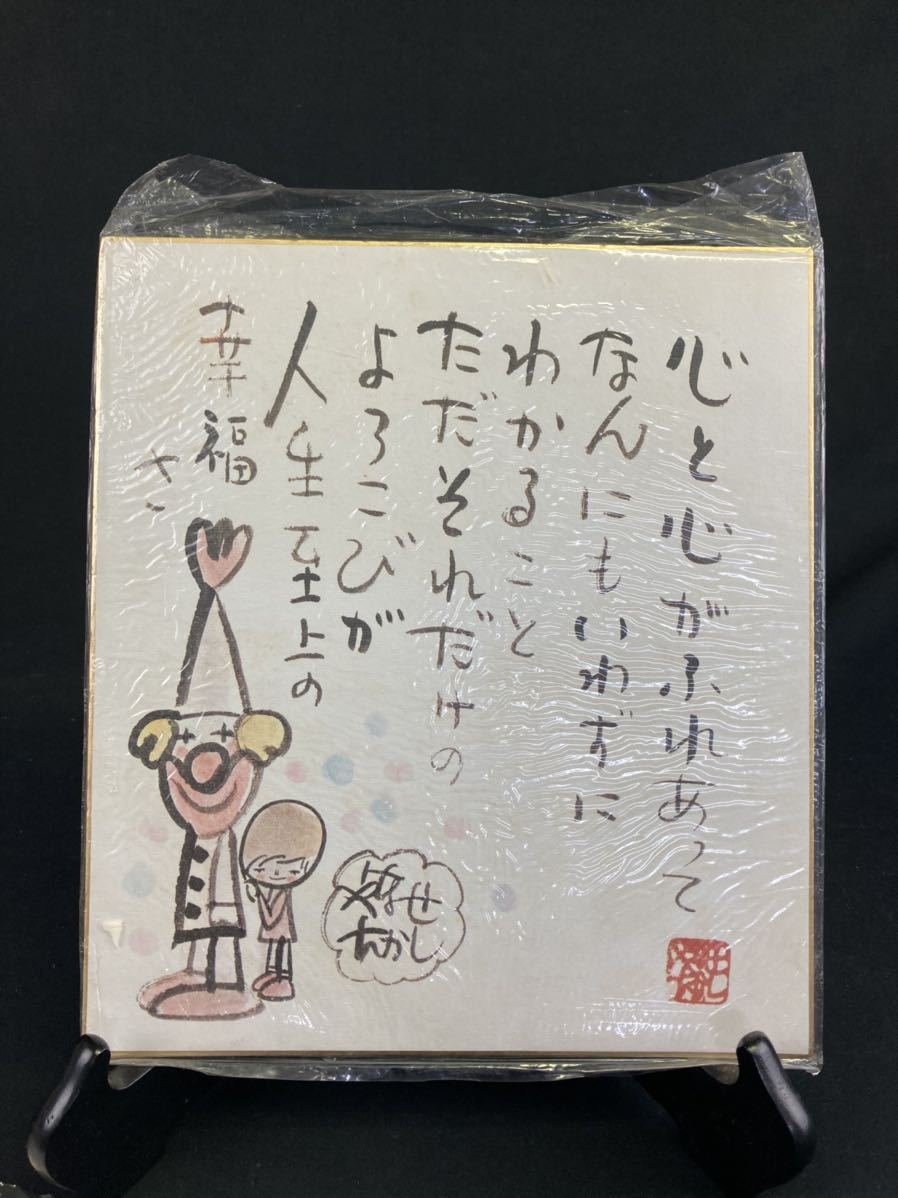 心と心がふれあって
なんにもいわずに
わかること
ただそれだけの
よろこびが
人生至上の
幸福さ
やなせ
たかし